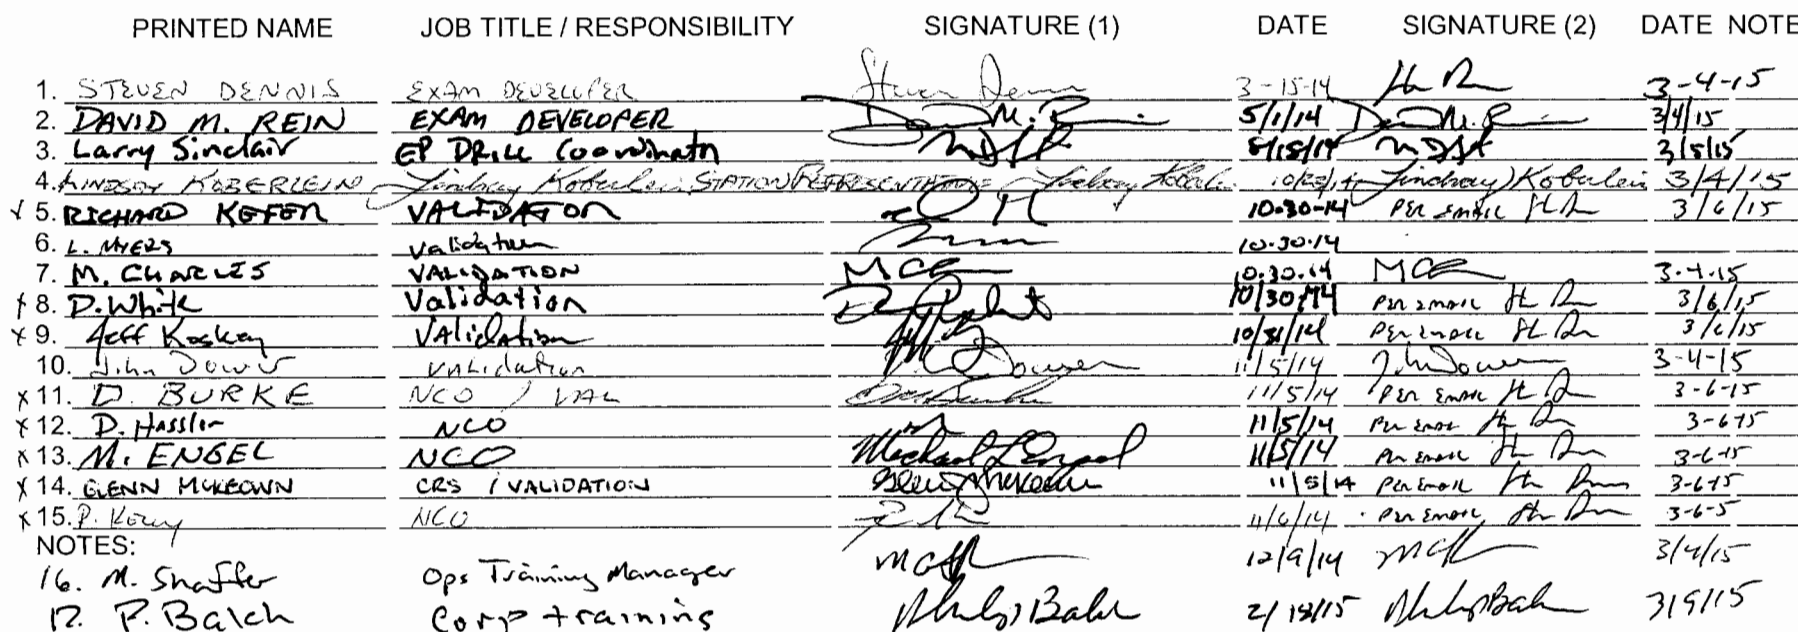 PRINTED NAME JOB TITLE / RESPONSIBILITY SIGNATURE (1) DATE SIGNATURE (2) DATE NOTE
1. STEVEN DENNIS EXAM DEVELOPER 3-15-14 3-4-15
2. DAVID M. REIN EXAM DEVELOPER David M. R 5/1/14 David M. R 3/4/15
3. Larry Sinclair EP DRILL Coordinator 3/5/15
4. LINDSAY KOBERLEIN Lindsay Koberlein STATION REPRESENTATIVE Lindsay Koberlein Lindsay Koberlein 3/4/15
x 5. RICHARD KEFER VALIDATOR 10-30-14 PER EMAIL 3/6/15
6. L. MYERS validation 10-30-14
7. M. CHARLES VALIDATION 10.30.14 3-4-15
x 8. D. White Validation 10/30/14 PER EMAIL 3/6/15
x 9. Jeff Koskey Validation 10/31/14 PER EMAIL 3/6/15
10. John Dower validation Dower 11/5/14 John Dower 3-4-15
x 11. D. BURKE NCO / VAL 11/5/14 PER EMAIL 3-6-15
x 12. D. Hassler NCO 11/5/14 PER EMAIL 3-6-15
x 13. M. ENGEL NCO Michael L Engel 11/5/14 PER EMAIL 3-6-15
x 14. GLENN MCKEOWN CRS / VALIDATION Glenn McKeown 11/5/14 PER EMAIL 3-6-15
x 15. P. NCO 11/6/14 PER EMAIL 3-6-5
NOTES:
16. M. Shaffer Ops Training Manager 12/9/14 3/4/15
17. P. Balch Corp training Philip Balch 2/18/15 Philip Balch 3/9/15